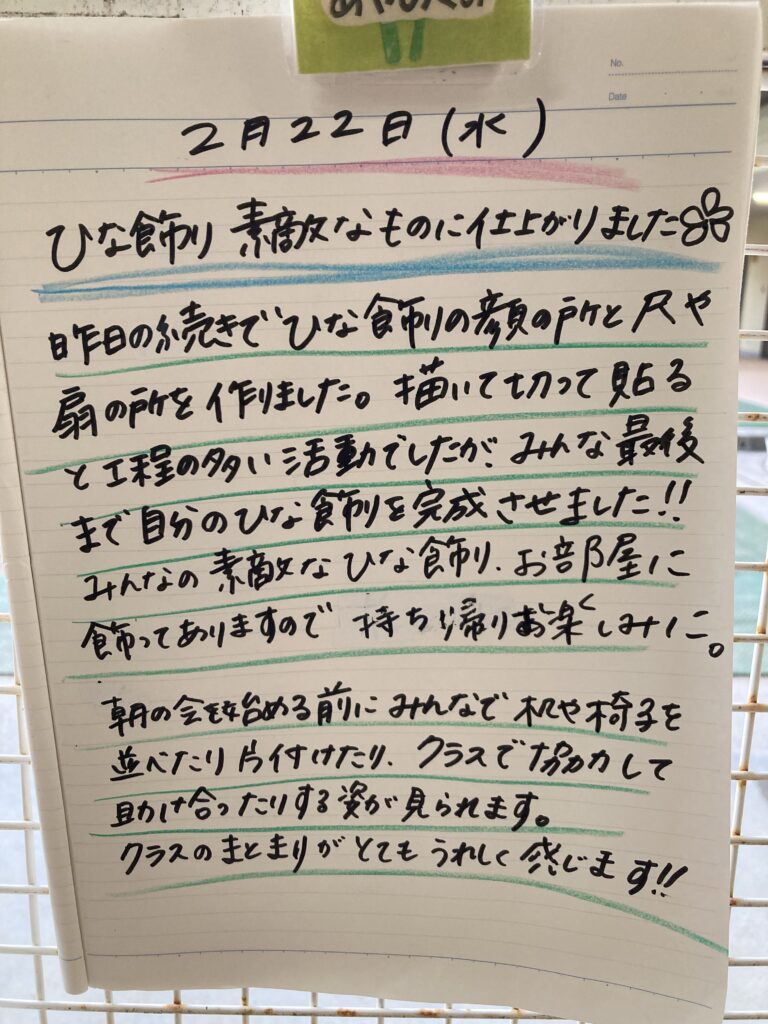 No.
Date
2月22日(水)
ひな飾り 素敵なものに仕上がりました
昨日の続きでひな飾りの顔の所と尺や
扇の所を作りました。描いて切って貼る
と工程の多い活動でしたが、みんな最後
まで自分のひな飾りを完成させました!!
みんなの素敵なひな飾り、お部屋に
飾ってありますので 持ち帰りお楽しみに。
朝の会を始める前にみんなで机や椅子を
並べたり片付けたり、クラスで協力して
助け合ったりする姿が見られます。
クラスのまとまりがとてもうれしく感じます!!